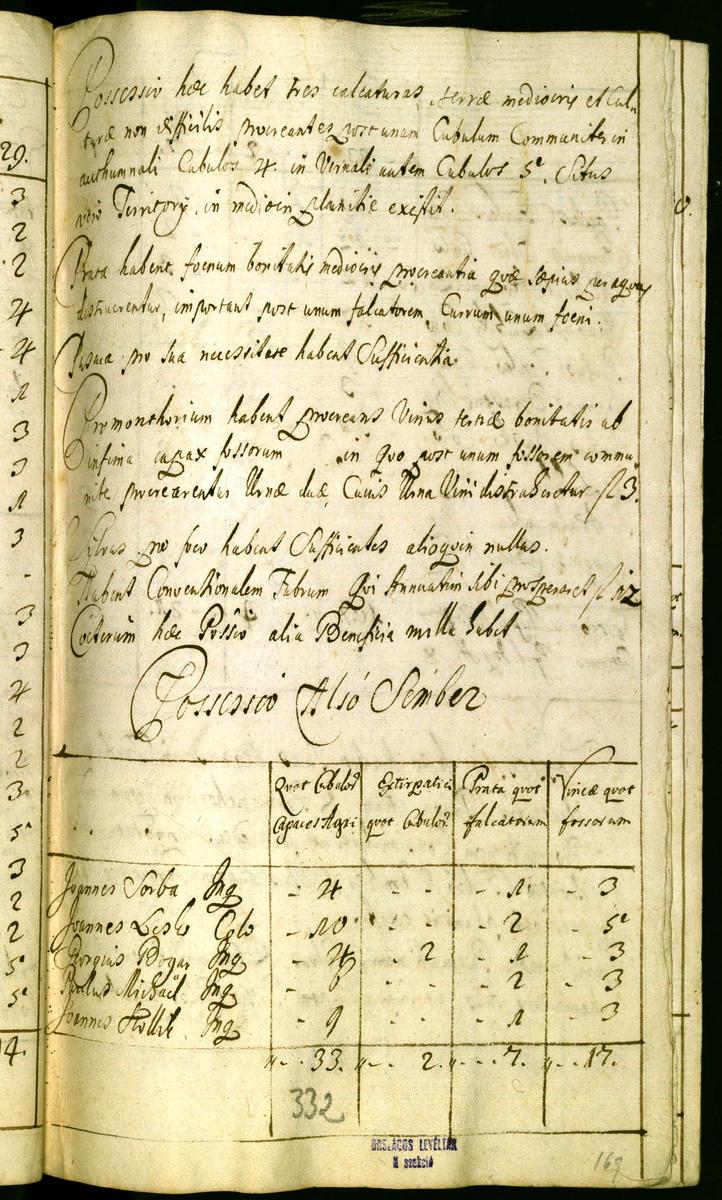 29.
3
2
2
4
4
1
3
3
1
3
-
3
3
4
2
2
3
5
3
2
2
5
5
4.
Possessio haec habet tres calcaturas, terrae mediocris et Cul-
turae non difficilis procreantes post unam Cubulum Communiter in
authumnali Cubulos 4. in Vernali autem Cubulos 5. Situs
vero Territorij in mediocri planitie existit.
Prata habent foenum bonitatis mediocris procreantia quae saepius per aquas
destruerentur, important post unum falcatorem, Currum unum foeni.
Pascua pro sua necessitate habent Sufficientia
Promonthorium habent procreans Vinus tertiae bonitatis ab
infima capax fossorum in quo post unum fossorem commu-
nite procrearentur Urnae duae, Cuius Urna Vini distraheretur fl 3.
Silvas pro foco habent Sufficientes alioquin nullas.
Habent Conventionalem Fabrum Qui Annuatim sibi prosperaret fl 12
Coeterum haec Possio alia Beneficia nulla habet
Possessio Alsó Sember
Quot Cubulor Capaces Agri
Extirpatici quot Cubulor
Prata quot falcatorum
Vineae quot fossorum
Joannes Sorba Inq - 4 - - - 1 - 3
Joannes Lesko Colo - 10 - - - 2 - 5
Georgius Bogar Inq - 4 - 2 - 1 - 3
Paulus Michael Inq - 6 - - - 2 - 3
Joannes Hollik Inq - 9 - - - 1 - 3
"- - 33. "- - 2. "- - 7. "- - 17.
332
ORSZÁGOS LEVÉLTÁR
N szekció
169